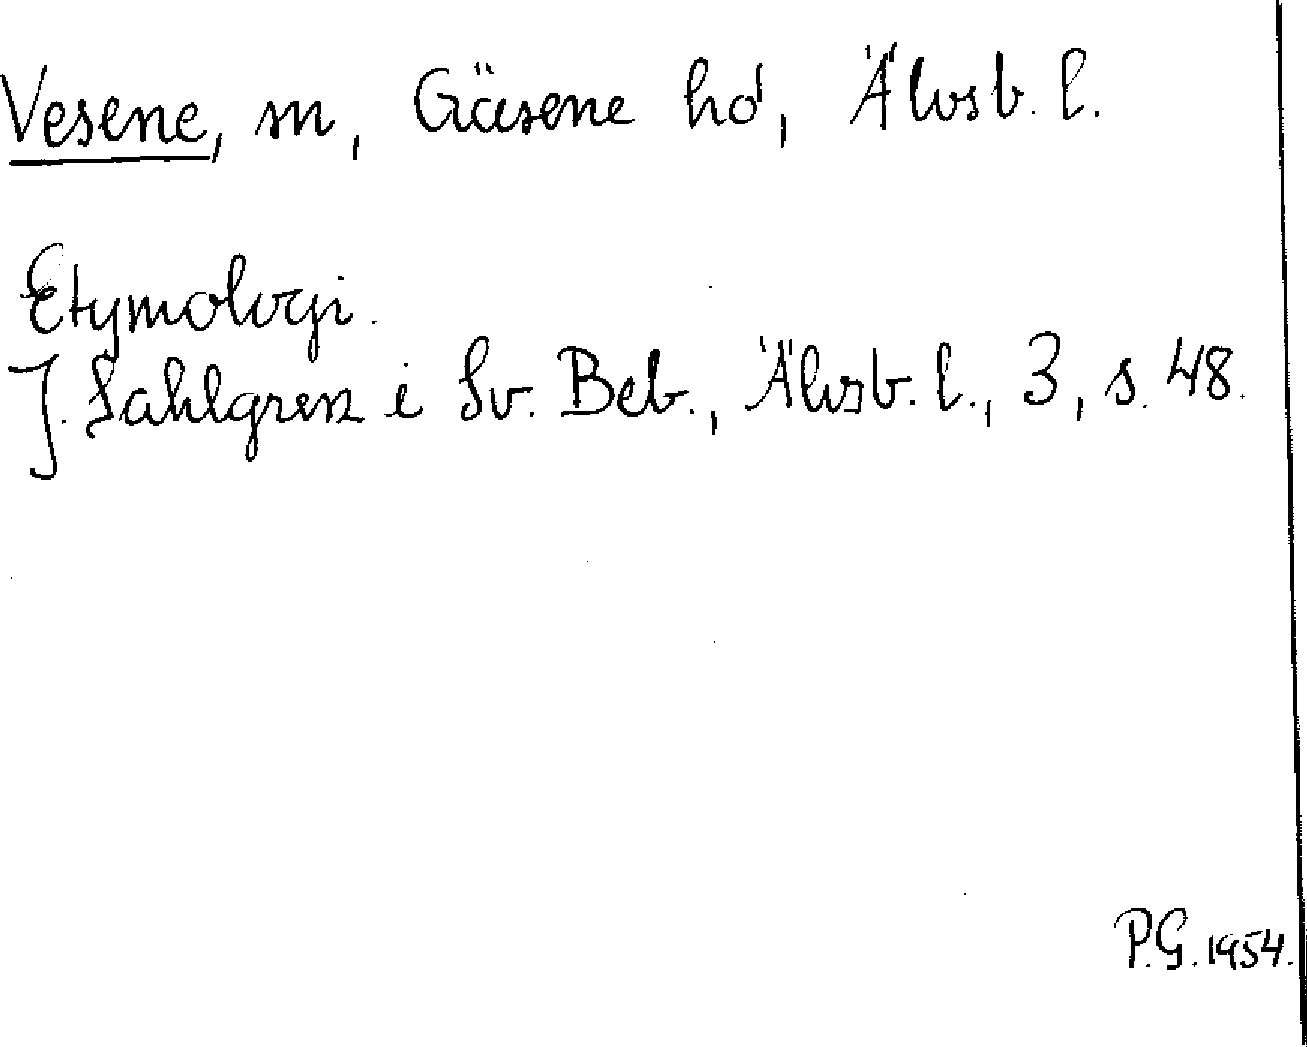 Vesene, sn, Gäsene hd, Älvsb. l.
Etymologi.
J. Sahlgren i Sv. Beb., Älvsb. l., 3, s. 48.
P.G. 1954.